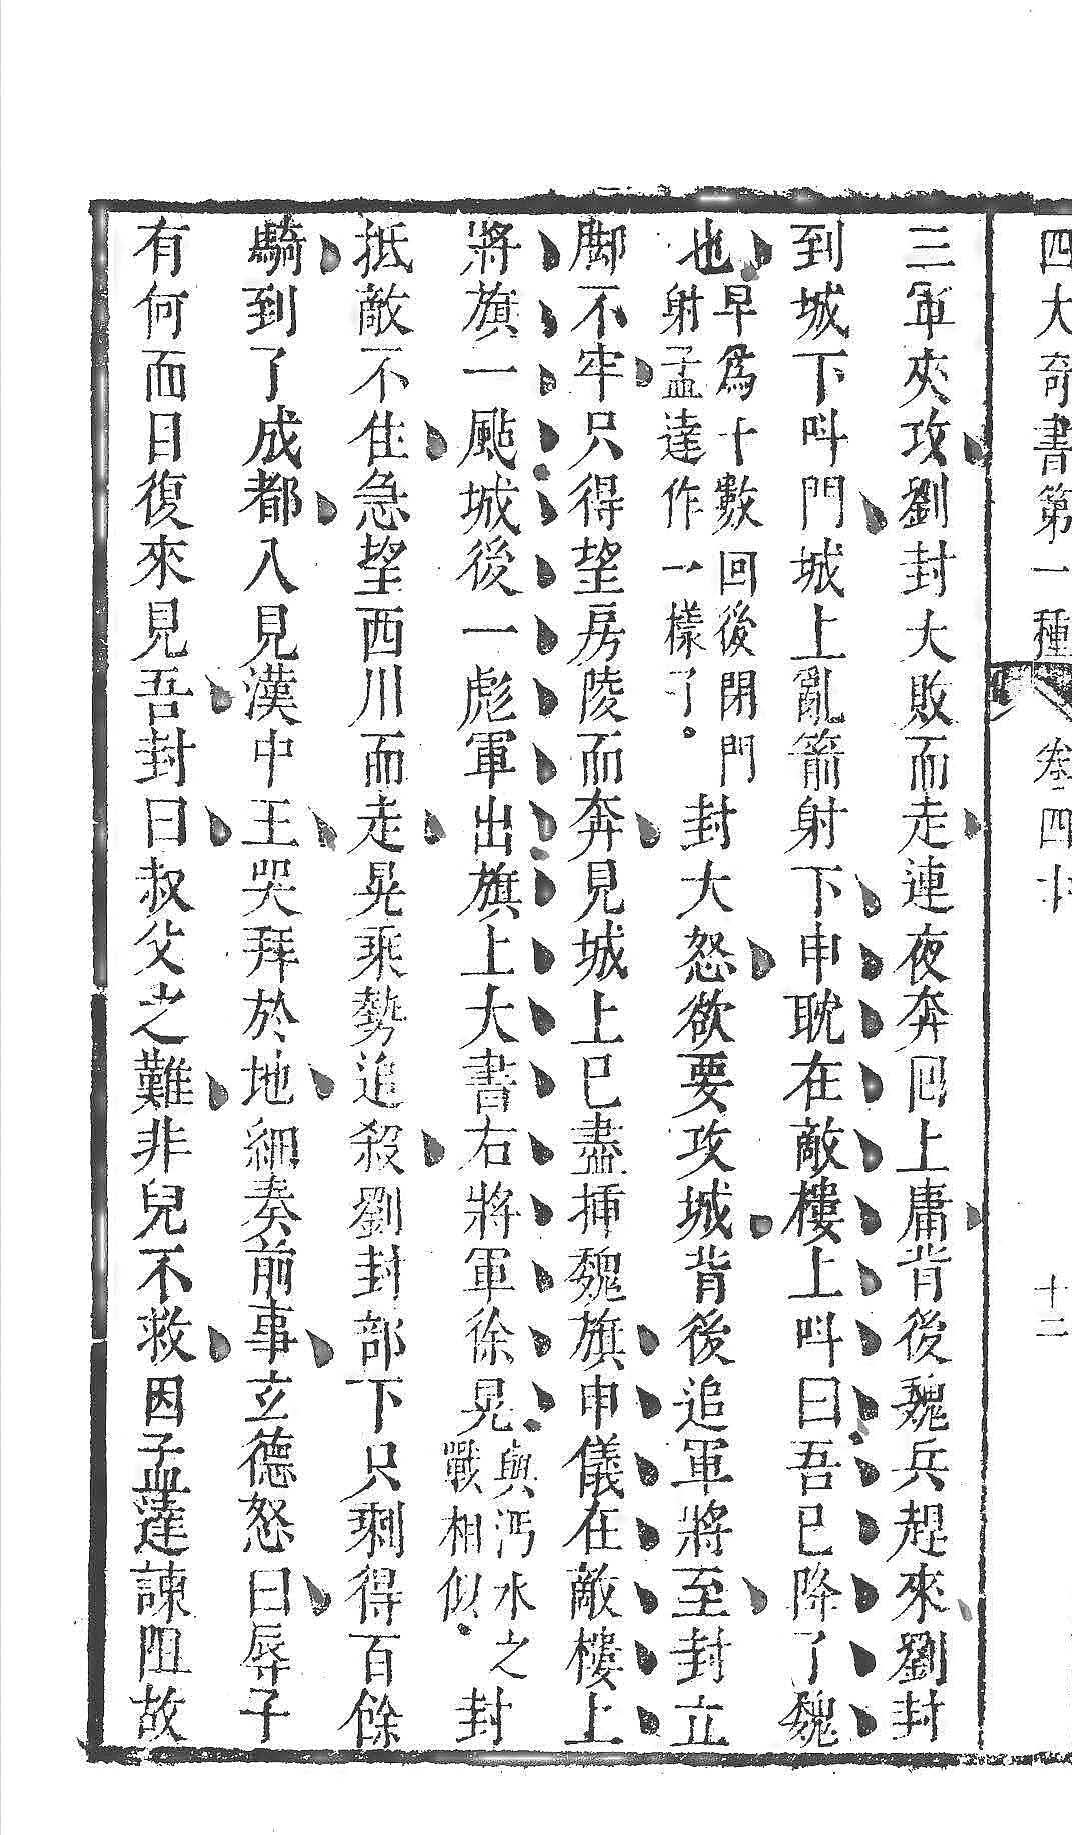 四大奇書第一種 卷四十 十二
三軍夾攻劉封大敗而走連夜奔回上庸背後魏兵趕來劉封
到城下呌門城上亂箭射下申耽在敵樓上呌曰吾已降了魏
也早爲十數回後閉門射孟達作一樣了。封大怒欲要攻城背後追軍將至封立
脚不牢只得望房陵而奔見城上已盡揷魏旗申儀在敵樓上
將旗一颭城後一彪軍出旗上大書右將軍徐晃與沔水之戰相似。封
抵敵不住急望西川而走晃乘勢追殺劉封部下只剩得百餘
騎到了成都入見漢中王哭拜於地細奏前事玄德怒曰辱子
有何面目復來見吾封曰叔父之難非兒不救因孟達諫阻故